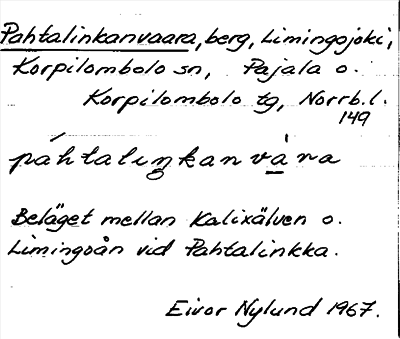 Pahtalinkanvaara, berg, Limingojoki,
Korpilombolo sn, Pajala o.
Korpilombolo tg, Norrb.l.
149
páhtaliŋkanvàra
Beläget mellan Kalixälven o.
Limingoån vid Pahtalinkka.
Eivor Nylund 1967.